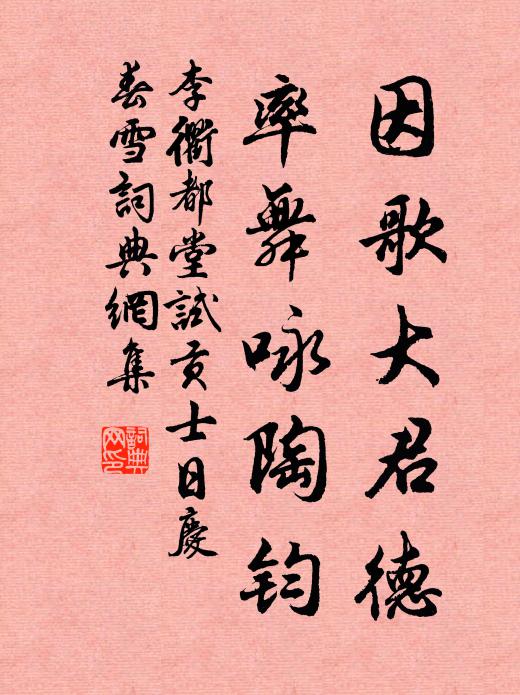 因歌大君德
率舞咏陶钧
李衢都堂試贡士日慶
春雪詞典網集
詞典
网印